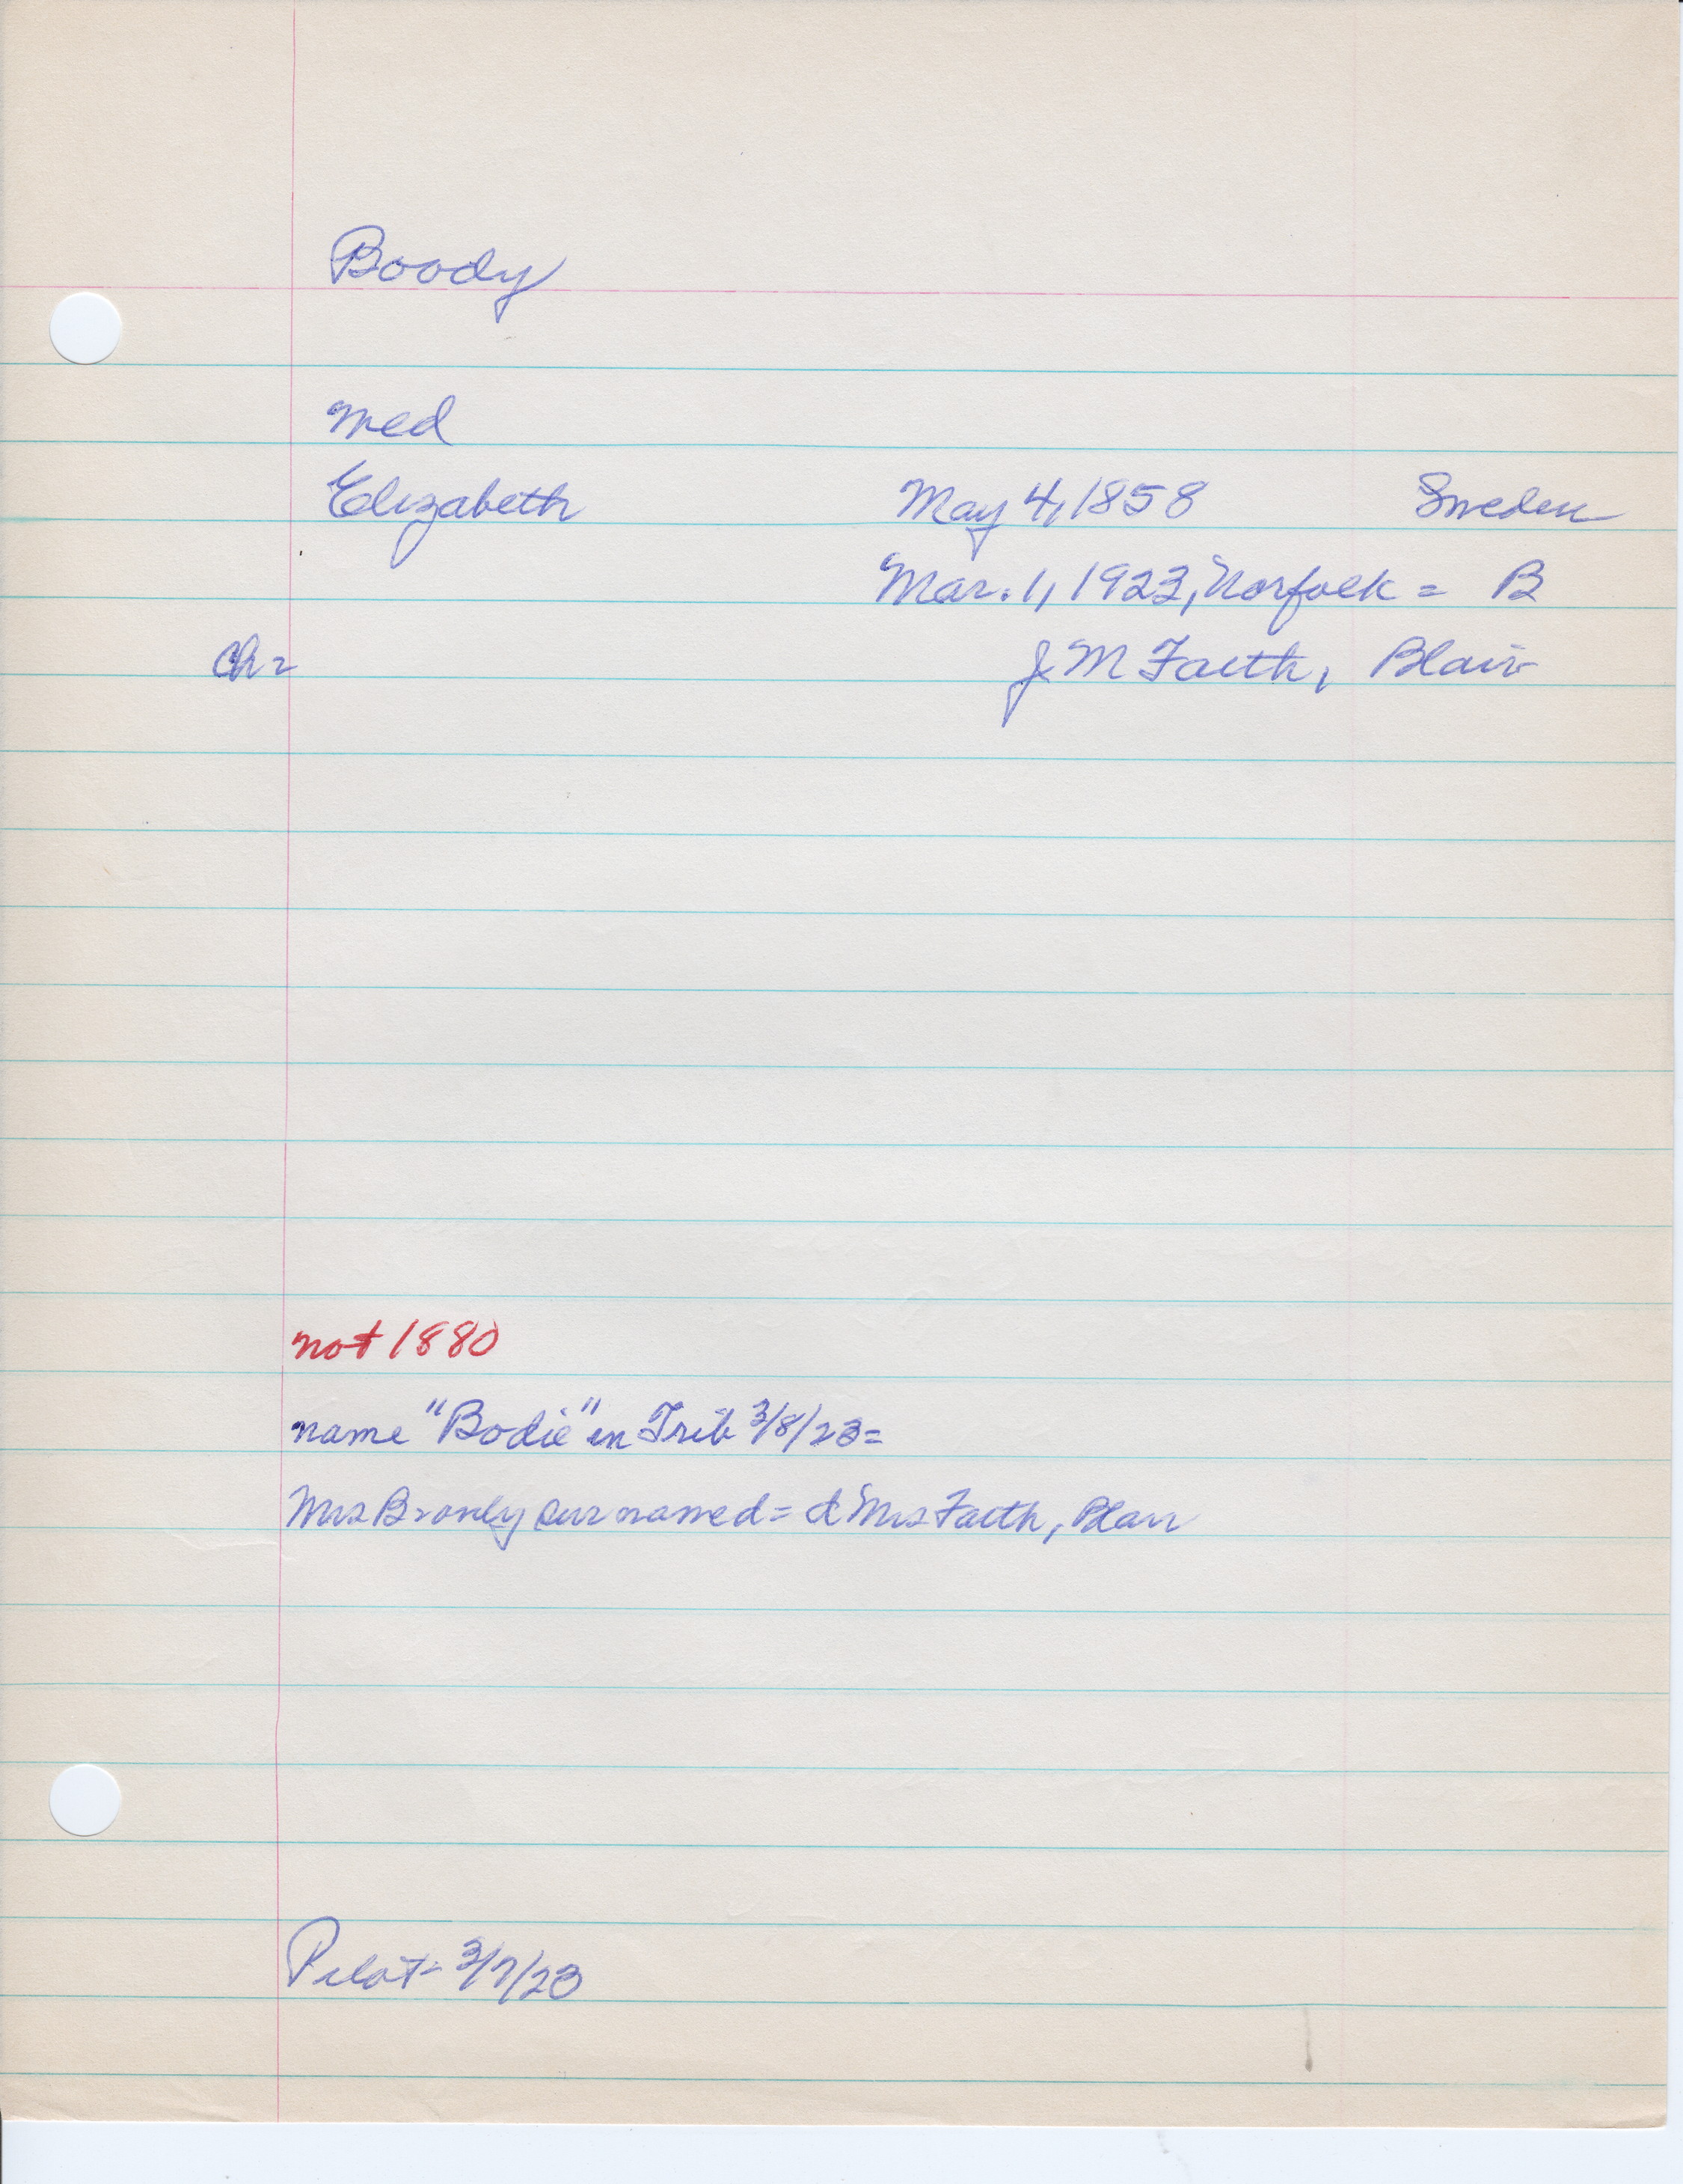 Boody
med
Elizabeth May 4, 1858 Sweden
Mar. 1, 1923, Norfolk = B
Ch = J M Faith, Blair
not 1880
name "Bodie" in Trib 3/8/23 =
Mrs Bronly named = & Mrs Faith, Blair
Pilot - 3/7/23